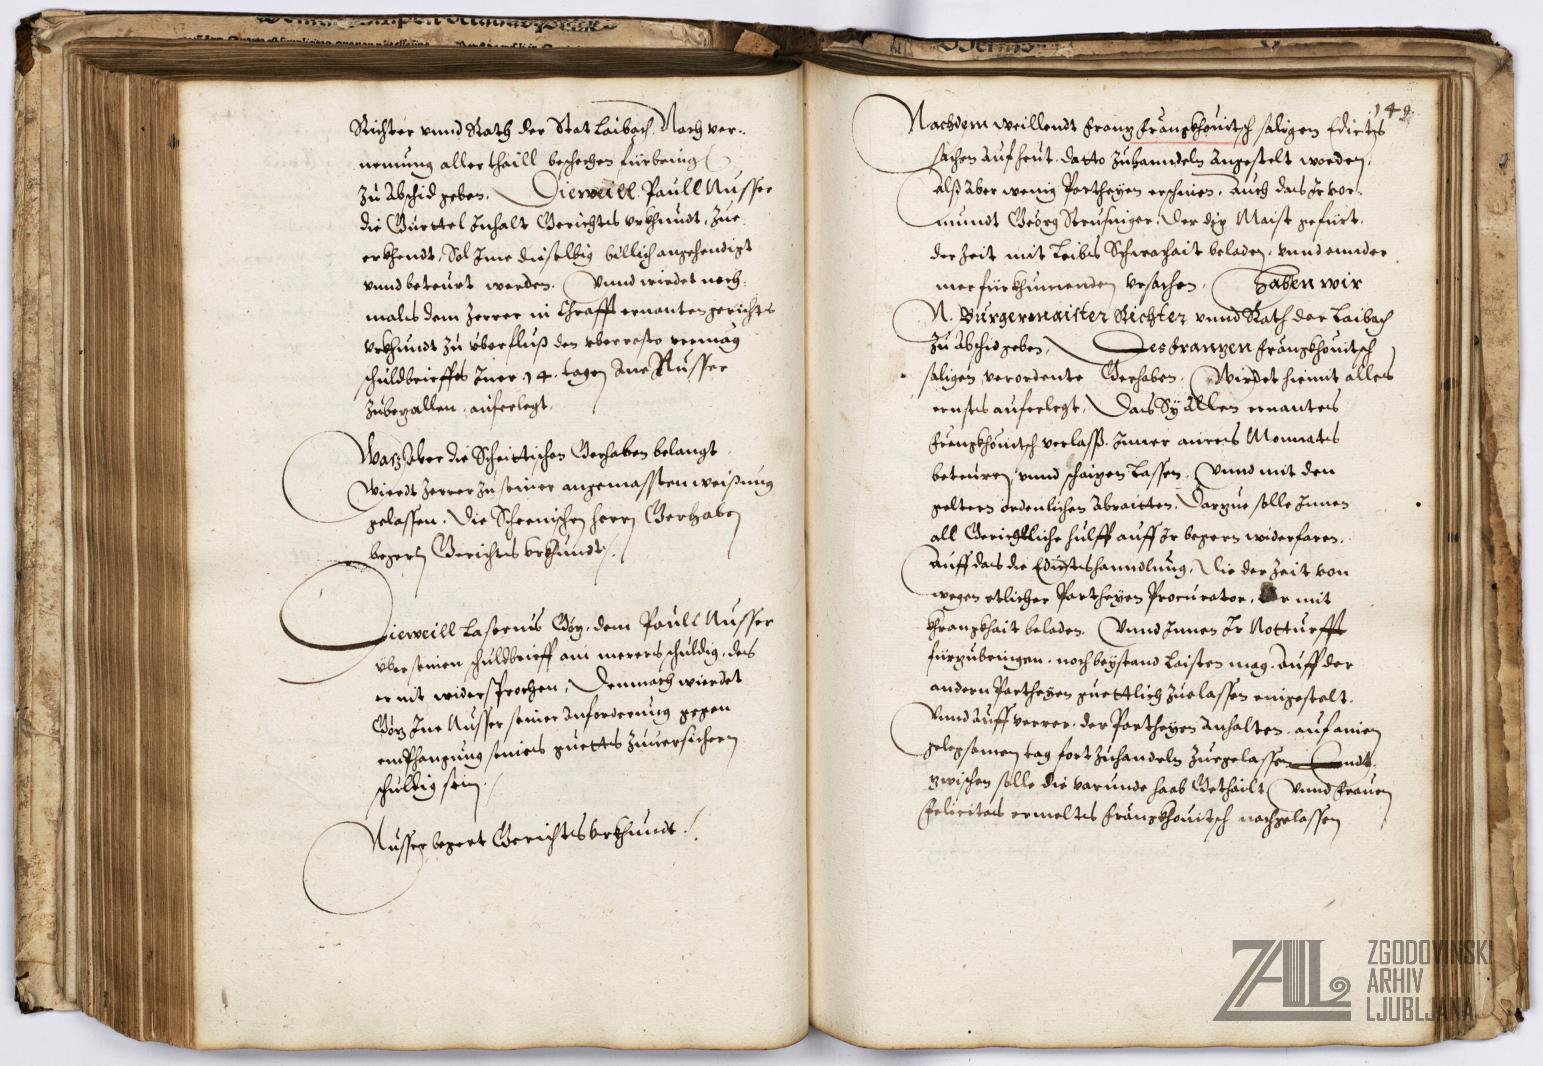 Richter vnnd Rath der Stat Laibach. Nach ver-
nemung aller thaill beschechen fürbring
zu Abschid geben. Dieweill Paull Nusser
die Gürttel Inhalt Gerichts vrkhundt, zue
erkhendt, Sol Ime dieselbig billich angehendigt
vnnd beteurt werden. Vnnd wirdet noch-
mals dem Zerrer in Chrafft ernanten gerichts
vrkhundt zu überfluß den vberresto vermüg
schuldbrieffs Iner 14. tagen Ime Nusser
zubezallen auferlegt.
Was aber die Gerhaben belangt
wierdt Zerrer zu seiner angemassten weisung
gelassen. Die herrn Gerhaben
begern Gerichts vrkhundt.
Dieweill Lasernus Gög dem Paull Nusser
über seinen schuldbrieff ain merers schuldig, das
er nit widersprochen, Demnach wierdet
Gög Ine Nusser seiner Anforderung gegen
emphangung seines guetts zuuersichern
schuldig sein.
Nusser begert Gerichts vrkhundt.
149.
Nachdem weillendt Franz Frangkhouitsch saligen Edicts
sachen auf heut datto zuhanndeln angestelt worden,
Alß aber wenig Partheyen erschinen, auch das Ir vor-
mundt Georg der diz Maist gefürt,
der Zeit mit Leibs Schwachait beladen, vnnd annder
mer fürkhumenden vrsachen. Haben wir
N. Burgermaister Richter vnnd Rath der Laibach
zu Abschid geben, Des Franzen Frangkhouitsch
saligen verordente Gerhaben. Wirdet hiemit alles
ernsts auferlegt, Das Sy Allen ernantes
Frangkhouitsch verlaß Inner aines Monnats
beteuren vnnd schäzen lassen. Vnnd mit den
geltern ordenlichen Abraitten, Darzue solle Innen
all Gerichtliche hülff auff Ir begern widerfaren.
Auff das die Edictshanndlung, Die der Zeit von
wegen etlicher Partheyen Procurator, Der mit
Khrangkhait beladen. Vnnd Innen Ir Notturfft
fürzubringen, noch beystand laisten mag. Auff der
andern Partheyen guettlich zuelassen eingestelt.
Vnnd auff verrer der Partheyen Anhalten, auf ainen
gelegsamen tag fort zuhandeln zuegelassen
zwischen solle die varunde haab Vnnd Frauen
Felicitas ermeltes Frangkhouitsch nachgelassen
ZAL
ZGODOVINSKI
ARHIV
LJUBLJANA